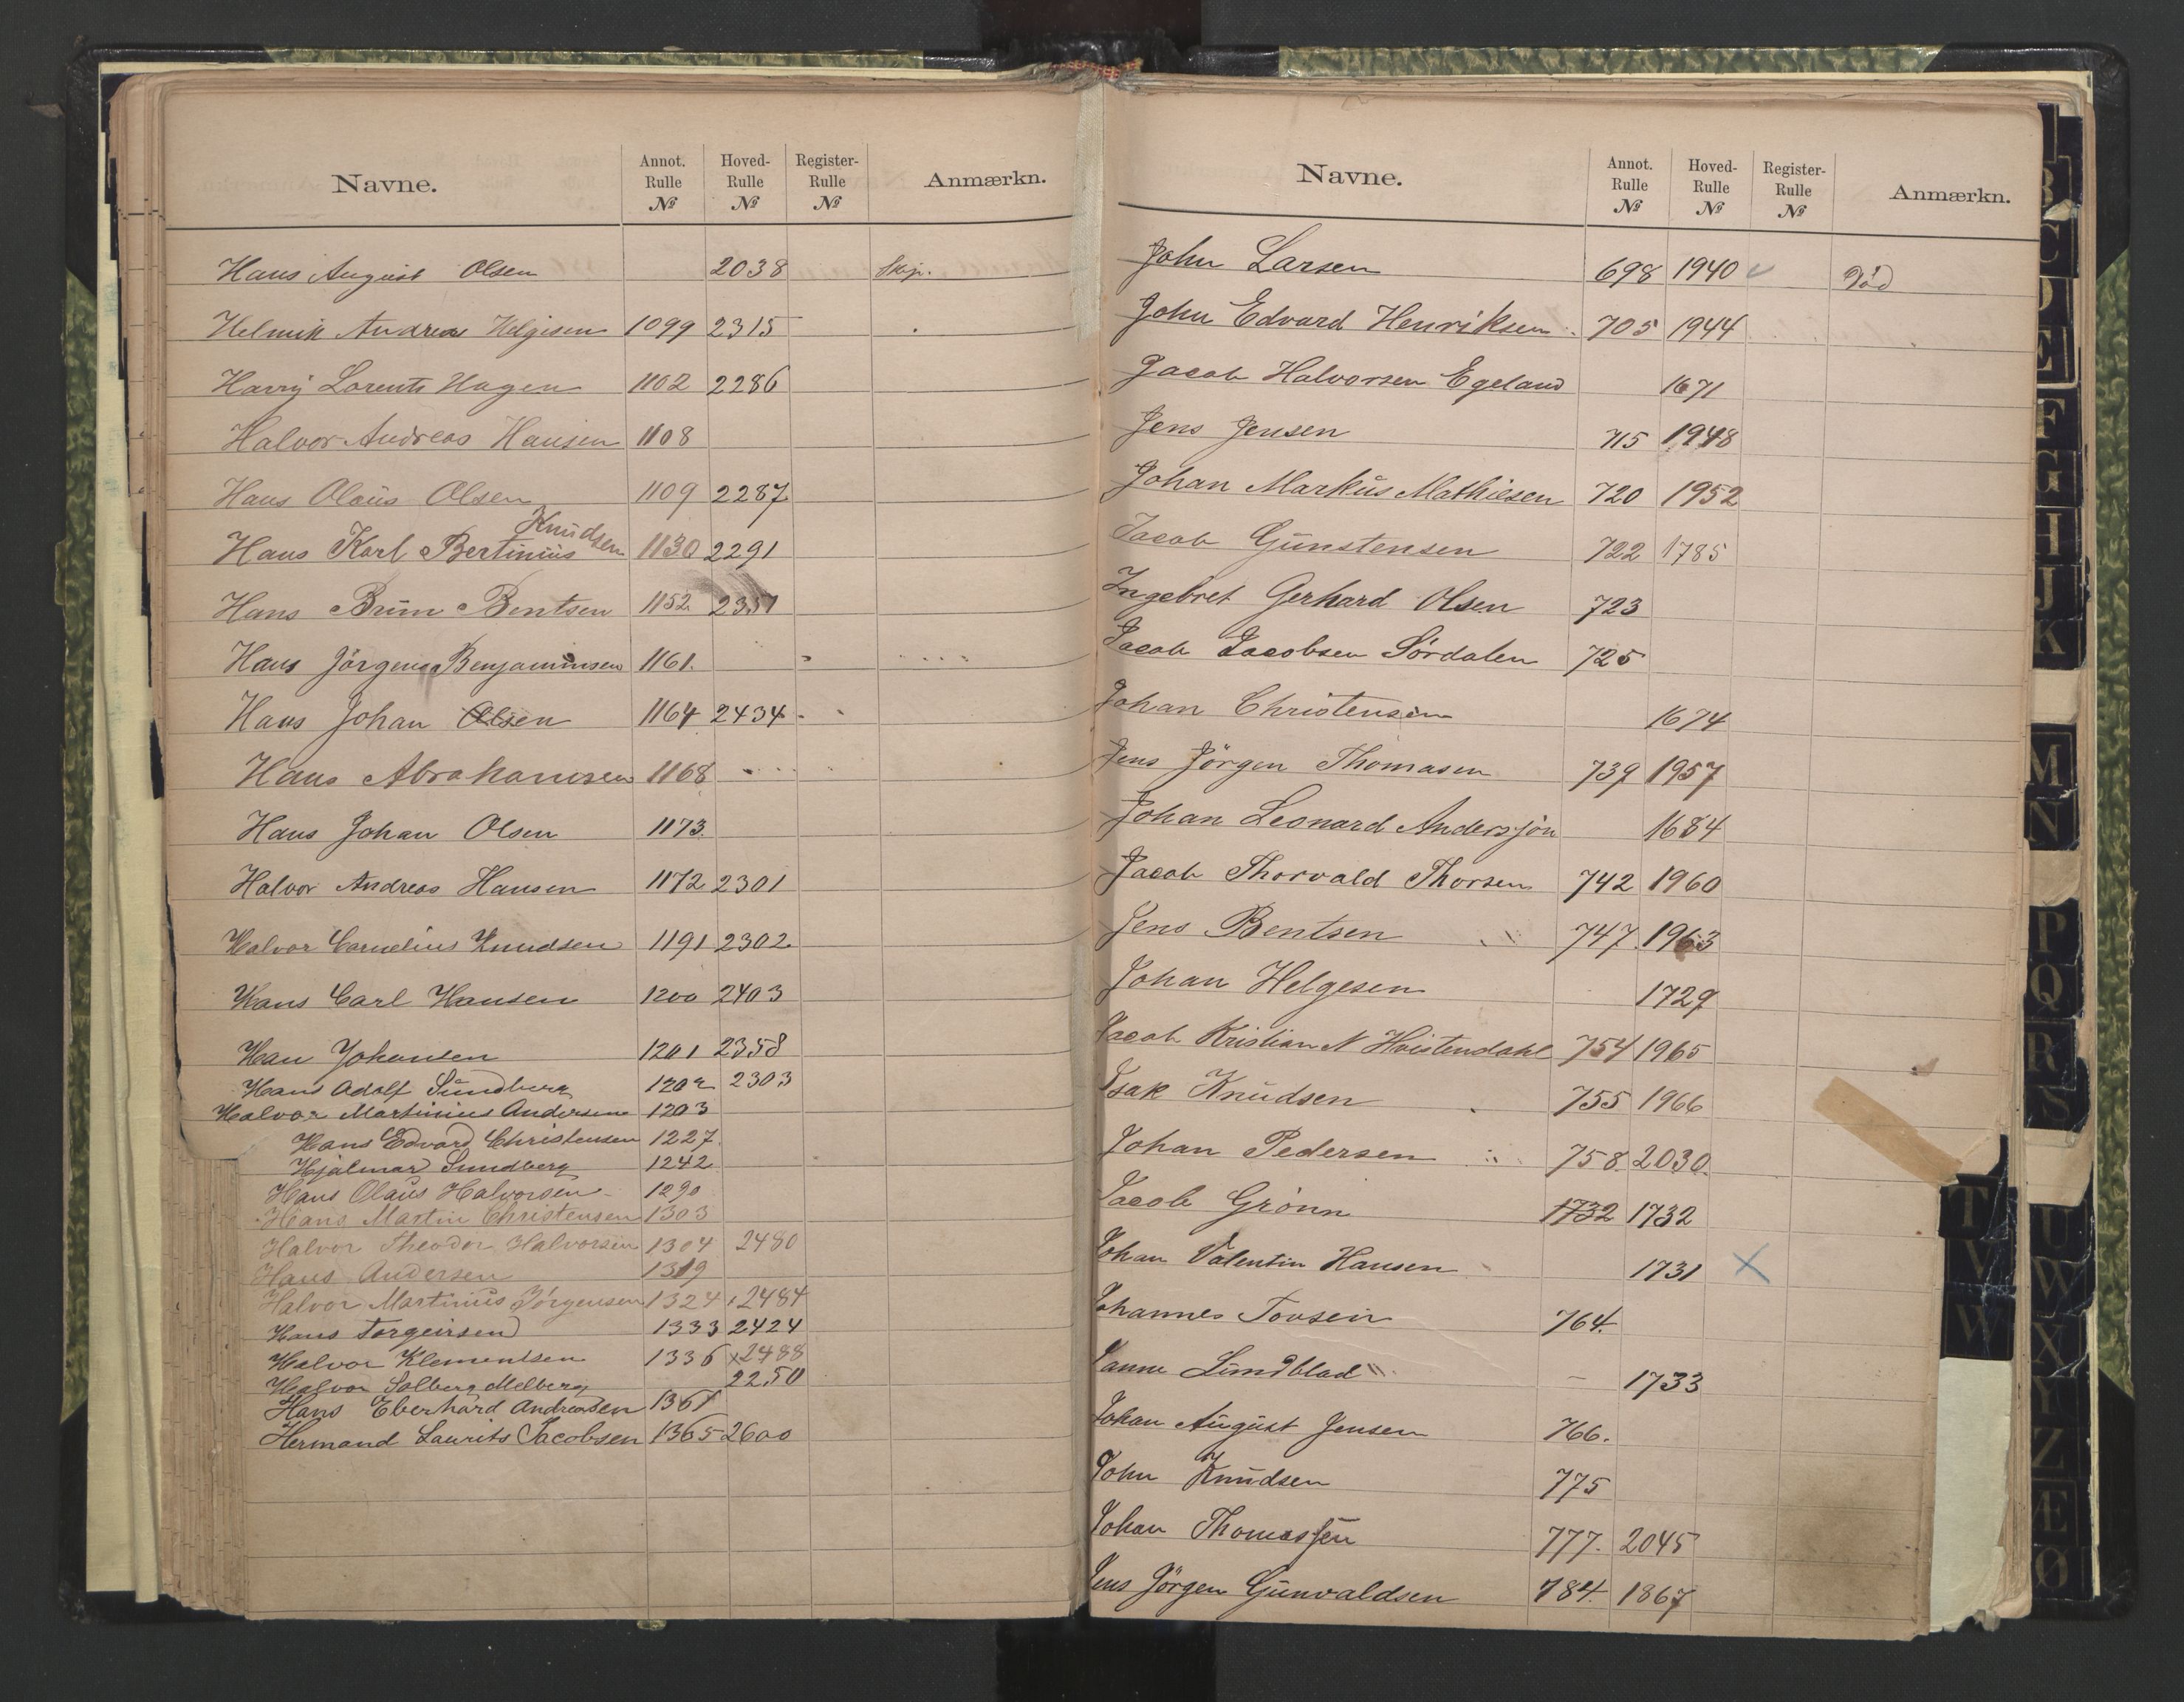 Navne. Annot. Rulle № Hoved- Rulle № Register- Rulle № Anmærkn.
Hans August Olsen 2038 Skip.
Helmik Andreas Helgesen 1099 2315
Harry Lorents Hagen 1102 2286
Halvor Andreas Hansen 1108
Hans Olaüs Olsen 1109 2287
Knudsen
Hans Karl Bertinius 1130 2291
Hans Brün Bentsen 1152 2351
Hans Jörgen Benjaminsen 1161.
Hans Johan Olsen 1164 2434
Hans Abrahamsen 1168
Hans Johan Olsen 1173.
Halvor Andreas Hansen 1172 2301
Halvor Cornelius Knudsen 1191 2302
Hans Carl Hansen 1200 2403
Han Johansen 1201 2358
Hans Adolf Sündberg 1202 2303
Halvor Martinius Andersen 1203
Hans Edvard Christensen 1227.
Hjalmar Sundberg 1242
Hans Olaüs Halvorsen 1290
Hans Martin Christensen 1303
Halvor Theodor Halvorsen 1304 2480
Hans Andersen 1319
Halvor Martinüs Jörgensen 1324 2484
Hans Torgeirsen 1333 2424
Halvor Klementsen 1336 x2488
Halvor Solberg Melberg 2250
Hans Eberhard Andreasen 1361
Hermand Laurits Jacobsen 1365 2600
Navne. Annot. Rulle № Hoved- Rulle № Register- Rulle № Anmærkn.
John Larsen 698 1940 Död
John Edvard Henriksen 705 1944
Jacob Halvorsen Egeland 1671
Jens Jensen 715 1948
Johan Markus Mathiesen 720 1952
Jacob Günstensen 722 1785
Ingebret Gerhard Olsen 723
Jacob Jacobsen Sördalen 725
Johan Christensen 1674
Jens Jörgen Thomasen 739 1957
Johan Leonard Andersjon 1684
Jacob Thorvald Thorsen 742 1960
Jens Bentsen 747. 1963
Johan Helgesen 1729
Jacob Kristian N Hoistendahl 754 1965
Isak Knudsen 755 1966
Johan Pedersen 758 2030
Jacob Grönn 1732 1732
Johan Valentin Hansen 1731 X
Johannes Tovsen 764.
Janne Lundblad 1733
Johan August Jensen 766.
John Knudsen 775
Johan Thomassen 777. 2045
Jens Jörgen Günvaldsen 784. 1867
B
C
D
E
F
G
I
J
K
M
N
P
Q
R
S
T
V
W
U
W
X
Y
Z
Æ
Ø